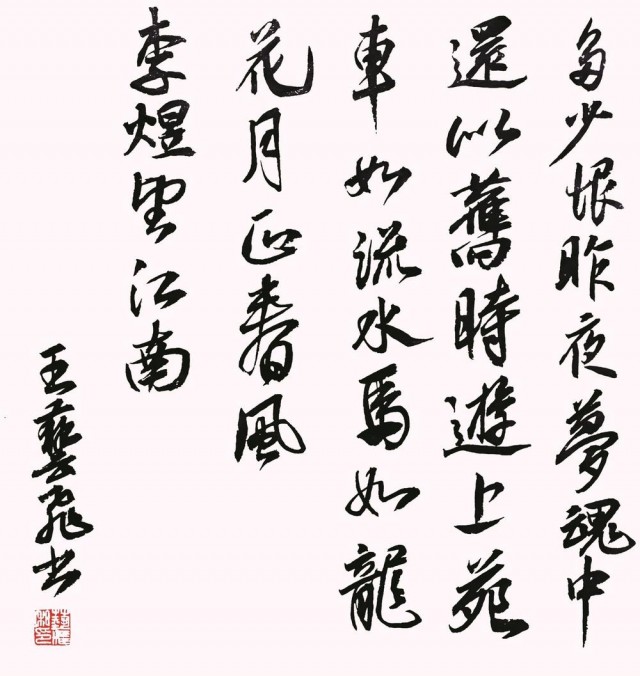 多少恨昨夜夢魂中
還似舊時遊上苑
車如流水馬如龍
花月正春風
李煜望江南
王藝飛書